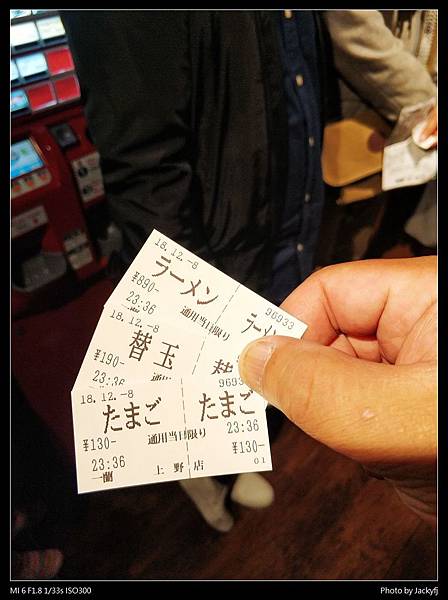 18.12.-8
ラーメン
¥890-
23:36
通用当日限り
96933
ラーメ
18.12.-8
替玉
¥190-
替
23:36
通用
9693
18.12.-8
たまご
たまご
¥130-
通用当日限り
23:36
23:36
¥130-
一蘭
上野店
01
MI 6 F1.8 1/33s ISO300
Photo by Jackyfj